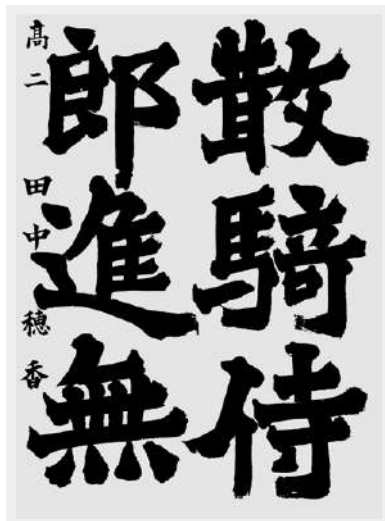 散騎侍
郎進無
高二 田中穂香